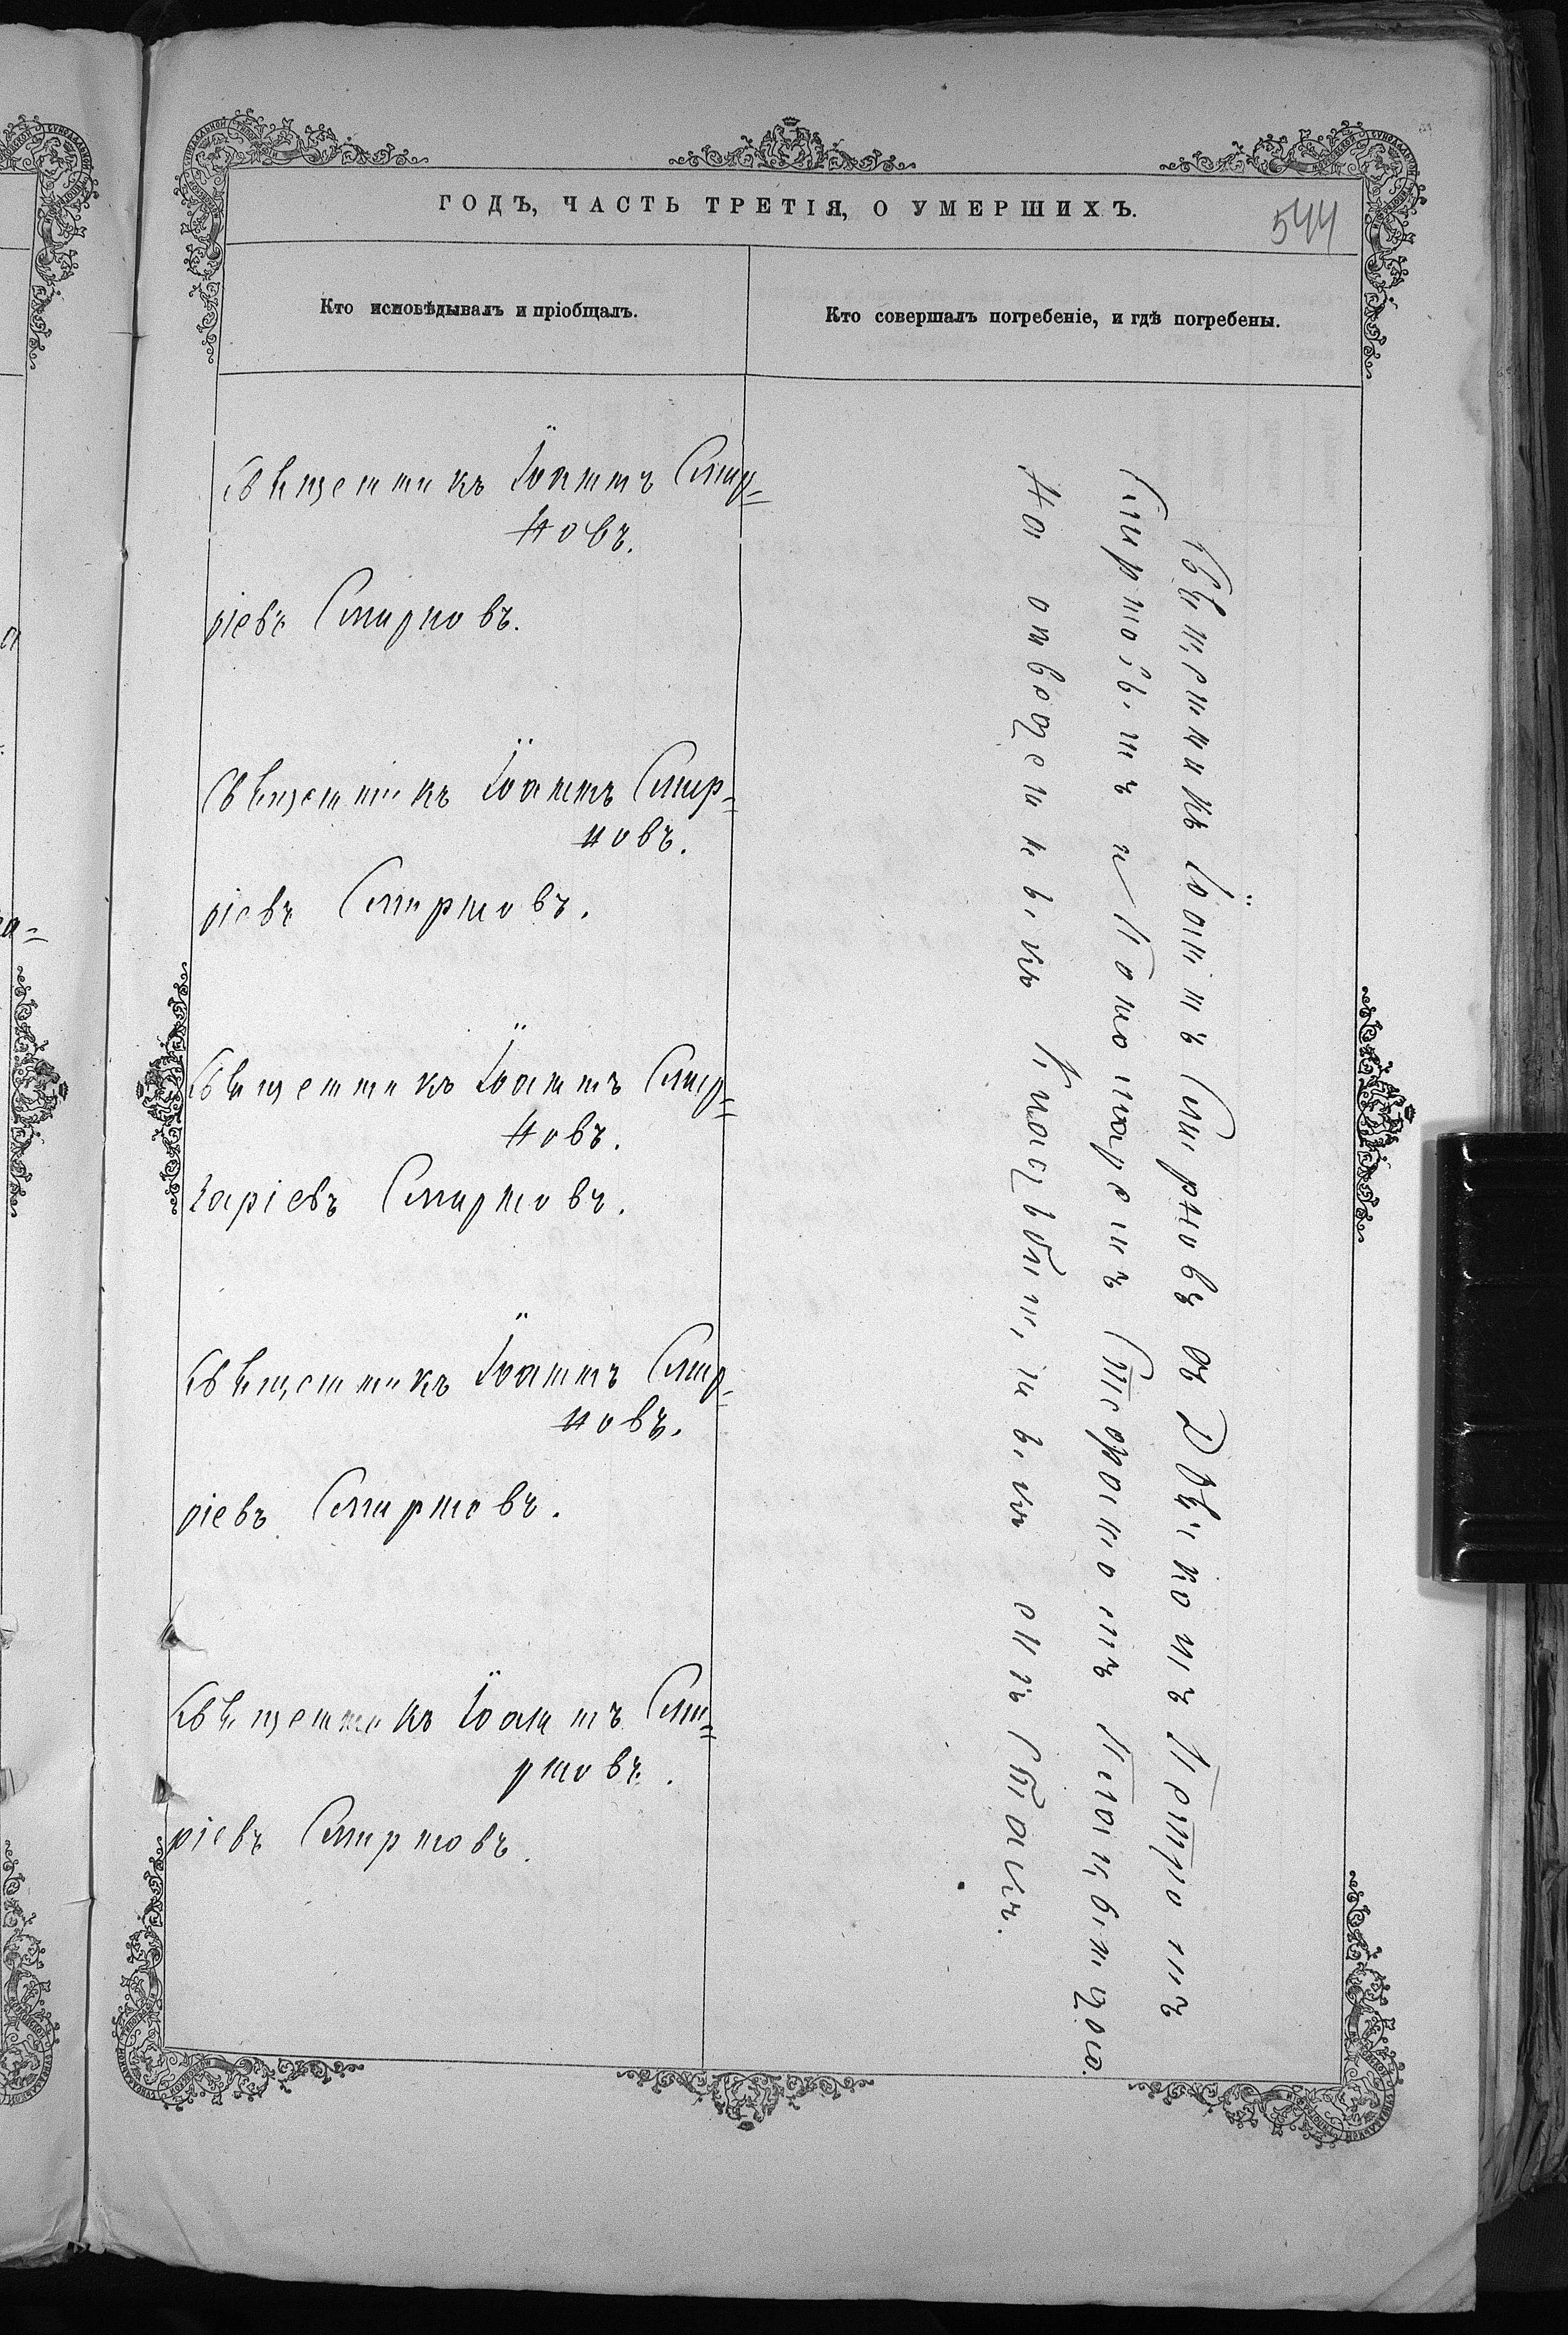 ГОДЪ, ЧАСТЬ ТРЕТІЯ, О УМЕРШИХЪ.
544
Кто исповѣдывалъ и пріобщалъ.
Кто совершалъ погребеніе, и гдѣ погребены.
Священникъ Іоаннъ Смир=
новъ.
ріевъ Смирновъ.
Священникъ Іоаннъ Смир=
новъ.
ріевъ Смирновъ.
Священникъ Іоаннъ Смир=
новъ.
каріевъ Смирновъ.
Священникъ Іоаннъ Смир=
новъ.
ріевъ Смирновъ.
Священникъ Іоаннъ Сми=
рновъ.
ріевъ Смирновъ.
Священникъ Іоаннъ Смирновъ съ Діакономъ Петромъ
Смирновымъ и Пономаремъ Стефаномъ
На отведенномъ кладбищѣ